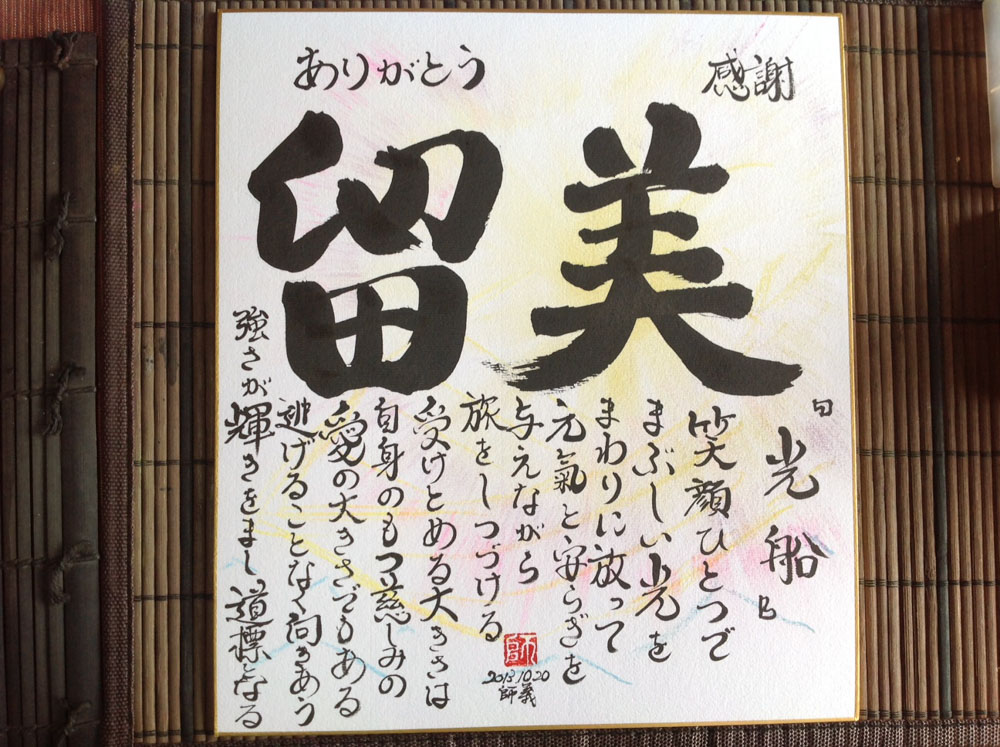 感謝
ありがとう
美留
「光船」
笑顔ひとつで
まぶしい光を
まわりに放って
元氣と安らぎを
与えながら
旅をしつづける
受けとめる大きさは
自身のもつ慈しみの
愛の大きさでもある
逃げることなく向きあう
強さが輝きをまし道標となる
2013.10.20
師義